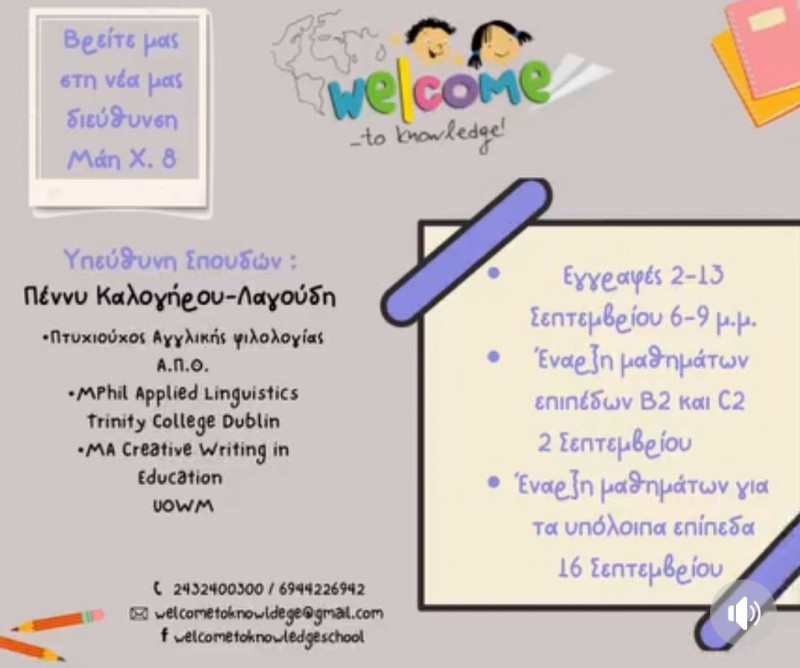 Βρείτε μας
στη νέα μας
διεύθυνση
Μάη Χ. 8
welcome
...to knowledge!
Υπεύθυνη Σπουδών :
Πέννυ Καλογήρου-Λαγούδη
•Πτυχιούχος Αγγλικής φιλολογίας
Α.Π.Θ.
•MPhil Applied Linguistics
Trinity College Dublin
•MA Creative Writing in
Education
UOWM
2432400300 / 6944226942
welcometoknowldege@gmail.com
f welcometoknowledgeschool
• Εγγραφές 2-13
Σεπτεμβρίου 6-9 μ.μ.
• Έναρξη μαθημάτων
επιπέδων B2 και C2
2 Σεπτεμβρίου
• Έναρξη μαθημάτων για
τα υπόλοιπα επίπεδα
16 Σεπτεμβρίου